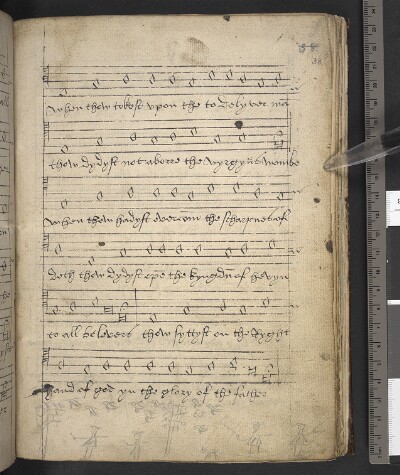 38
38
when thow tokest upon the to delyver ma
thow dydyst not aborre the vyrgyns wombe
when thow hadyst overcom the scharpnes of
deth thow dydyst ope the kyngdm of hevyn
to all belevers thow syttyst on the Ryght
hand of god yn the glory of the father